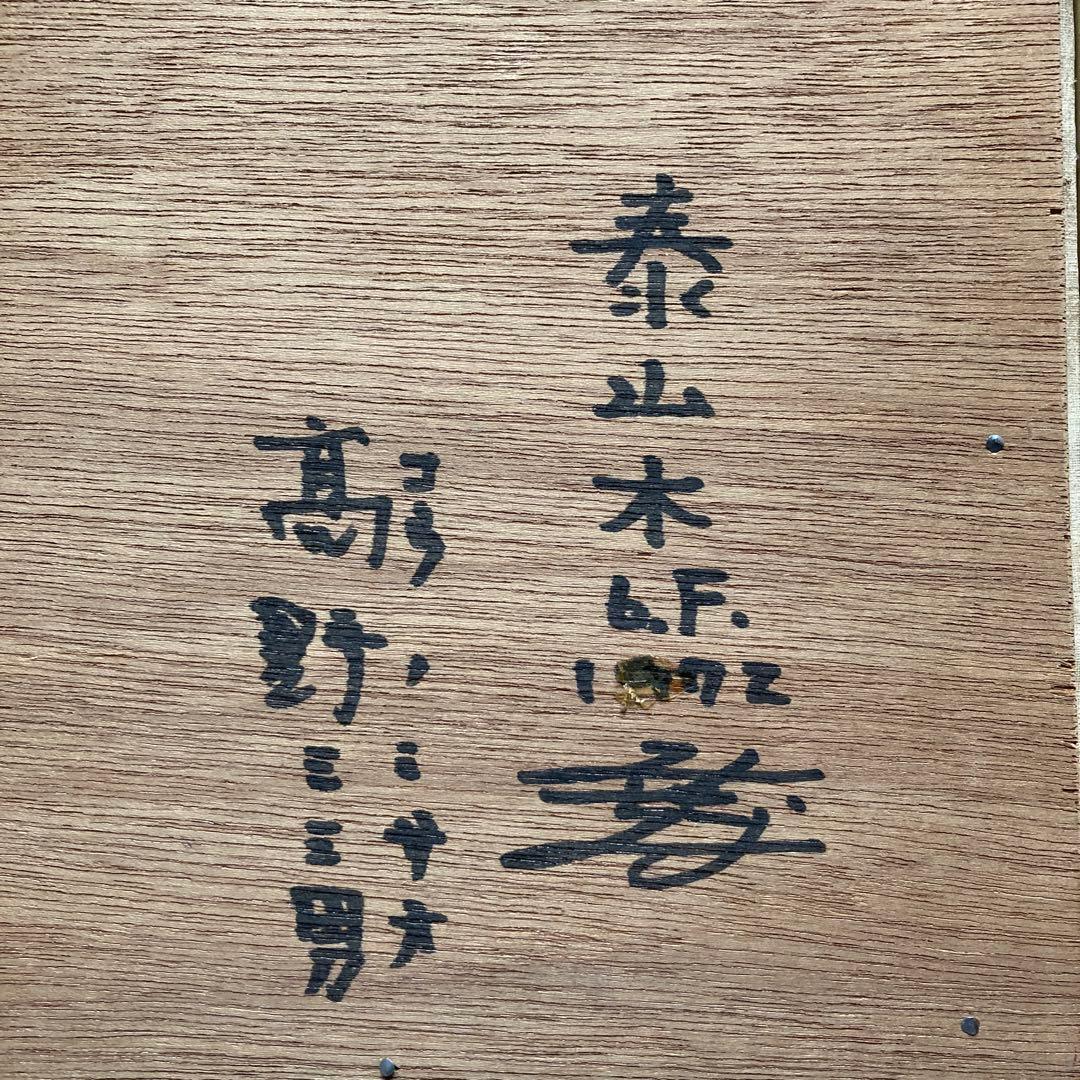 泰山木
6.F.
1972
コウノミサオ
高野三三男